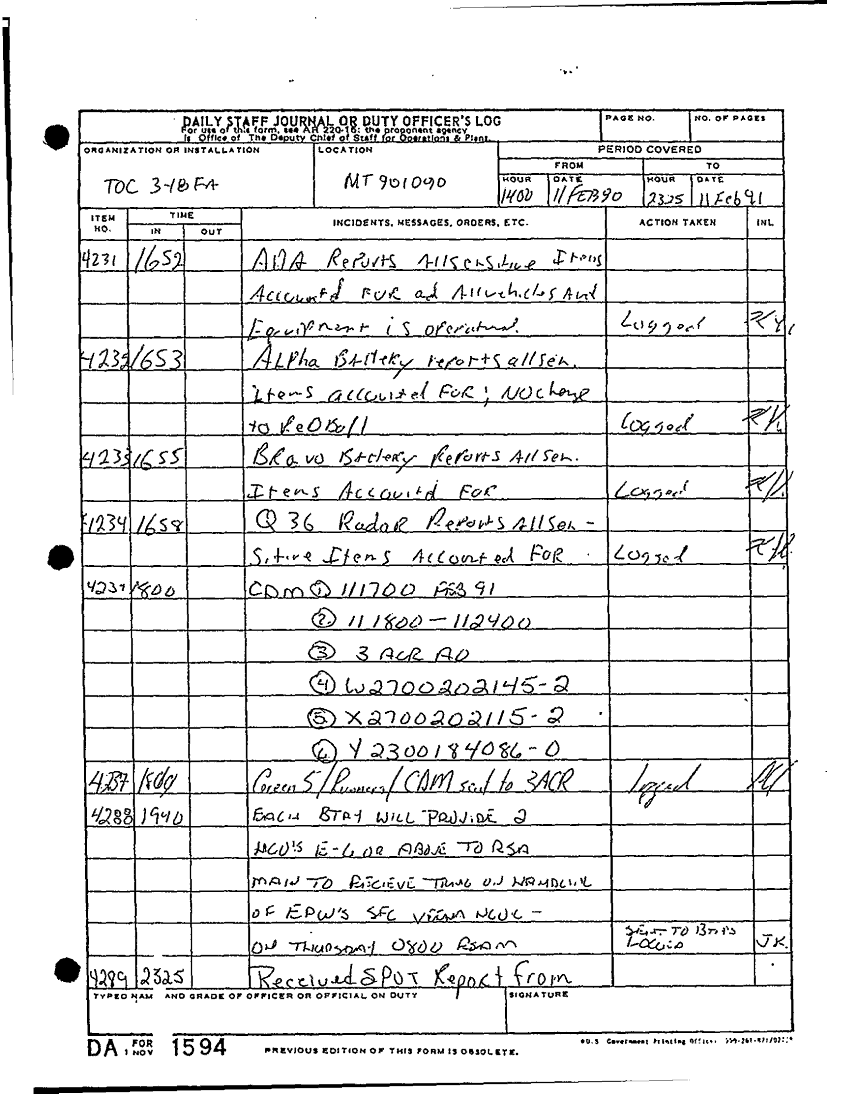 DAILY STAFF JOURNAL OR DUTY OFFICER'S LOG
For use of this form, see AR 220-15; the proponent agency
is Office of The Deputy Chief of Staff for Operations & Plans.
PAGE NO.
NO. OF PAGES
ORGANIZATION OR INSTALLATION
TOC 3-18 FA
LOCATION
MT 901090
PERIOD COVERED
FROM TO
HOUR DATE HOUR DATE
1400 11 FEB 90 2325 11 Feb 91
ITEM NO. TIME INCIDENTS, MESSAGES, ORDERS, ETC. ACTION TAKEN INL
IN OUT
4231 1652 ADA Reports Allsensitive Items
Accountd FOR ad Allvehicles And
Equipment is operatunal. Logged
4232 1653 ALPha Battery reports all sen.
Items accounted FOR; NO change
to ReDBall Logged
4233 1655 BRavo Battery Reports All Sen.
Items Accountd FOR Logged
4234 1658 Q 36 Radar Reports All Sen-
sitive Items Accounted FOR Logged
1800 CDM ① 111700 FEB 91
② 111800 - 112400
③ 3 ACR AO
④ W2700202145-2
⑤ X2700202115-2
⑥ Y2300184086-0
4287 Green 5/ /CDM sent to 3ACR logged
4288 1940 EACH BTRY WILL PROVIDE 2
NCO'S E-6 OR ABOVE TO RSA
MAIN TO RECIEVE TRNG ON HANDLING
OF EPW'S SFC NCOIC -
ON THURSDAY 0800 SENT TO BTRYS
JK.
4289 2325 Received SPOT Report from
TYPED NAM AND GRADE OF OFFICER OR OFFICIAL ON DUTY
SIGNATURE
DA FORM 1 NOV 1594
PREVIOUS EDITION OF THIS FORM IS OBSOLETE.
U.S. Government Printing Office: